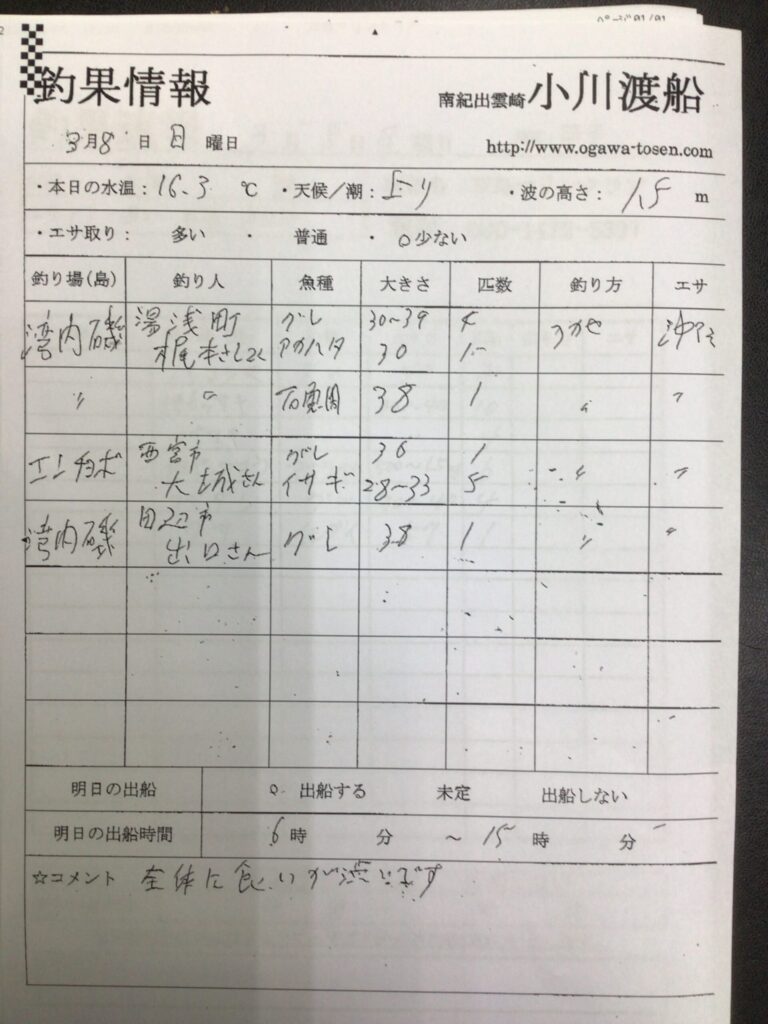 釣果情報
南紀出雲崎 小川渡船
3月8日 日 曜日
http://www.ogawa-tosen.com
・本日の水温：16.3 ℃ ・天候／潮：上り ・波の高さ：1.5 m
・エサ取り： 多い ・ 普通 ・ ○少ない
釣り場(島) 釣り人 魚種 大きさ 匹数 釣り方 エサ
湾内磯 湯浅町 グレ 30〜39 4 フカセ
梶本さん アカハタ 30 1
〃 〃 38 1 〃 〃
西宮市 グレ 36 1
大城さん イサギ 28〜33 5 〃 〃
湾内磯 田辺市
出口さん グレ 38 1 〃 〃
明日の出船 ○ 出船する 未定 出船しない
明日の出船時間 6時 分 〜 15時 分
☆コメント 全体に食いが渋いです